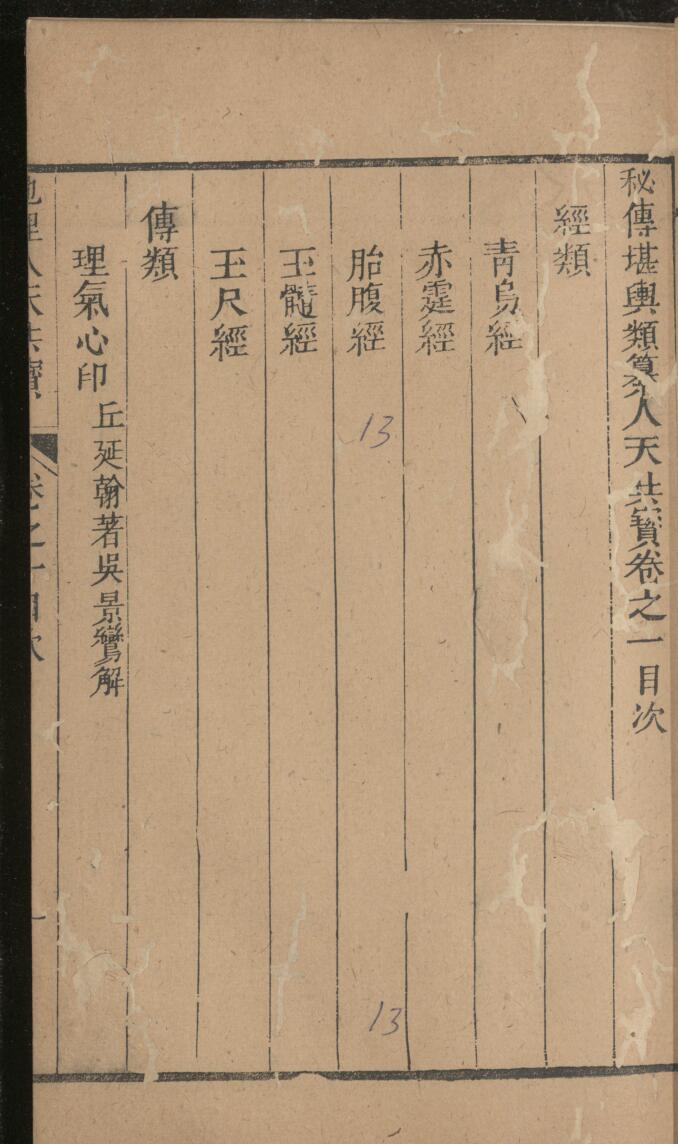 秘傳堪輿類纂人天共寶卷之一目次
經類
青烏經
赤霆經
胎腹經
玉髓經
玉尺經
傳類
理氣心印 丘延翰著吳景鸞解
地理人天共寶 卷之一目次 一
13
13